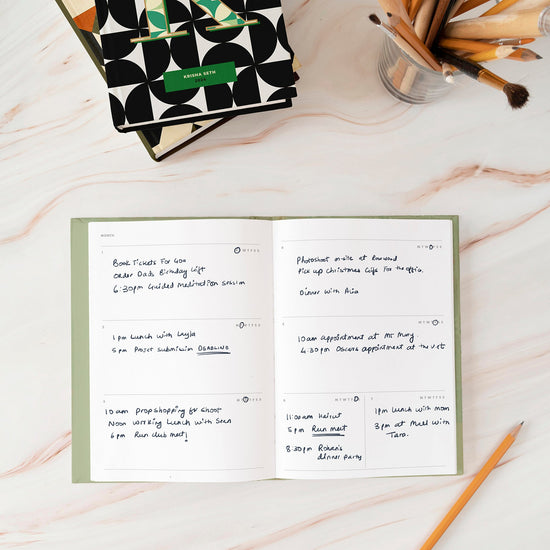 R
KRISHA SETH
MONTH
1
Book Tickets For Goa
Order Dads Birthday Gift
6:30pm Guided Meditation Session
2
1pm Lunch with Layla
5pm Project submission DEADLINE
3
10am Prop shopping for shoot
Noon Working Lunch with Sean
6pm Run club meet!
4
Photoshoot on-site at
Pick up Christmas Gifs For the office.
Dinner with Mia
5
10am appointment at Mr Mony.
4:30pm Oscars appointment at the vet
6
11:00am Haircut
5pm Run meet
8:30pm Rohan's
dinner party
7
1pm Lunch with mom
3pm at Mall with
Tara.